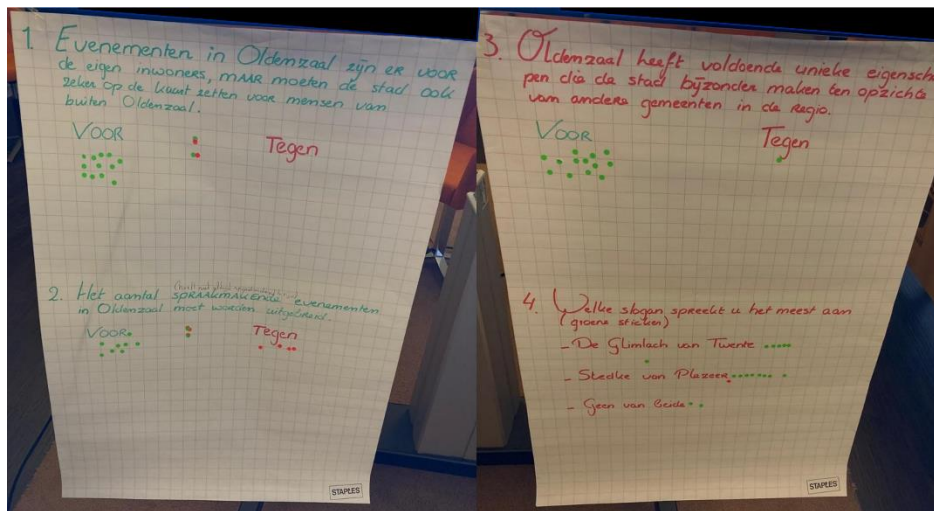 1. Evenementen in Oldenzaal zijn er voor
de eigen inwoners, MAAR moeten de stad ook
zeker op de kaart zetten voor mensen van
buiten Oldenzaal.
VOOR
Tegen
2. Het aantal SPRAAKMAKENDE evenementen
in Oldenzaal moet worden uitgebreid.
VOOR
Tegen
STAPLES
3. Oldenzaal heeft voldoende unieke eigensch
pen die de stad bijzonder maken ten opzichte
van andere gemeenten in de regio.
VOOR
Tegen
4. Welke slogan spreekt u het meest aan
(groene sticker)
- De Glimlach van Twente
- Stedke van Plezeer
- Geen van beide
STAPLES